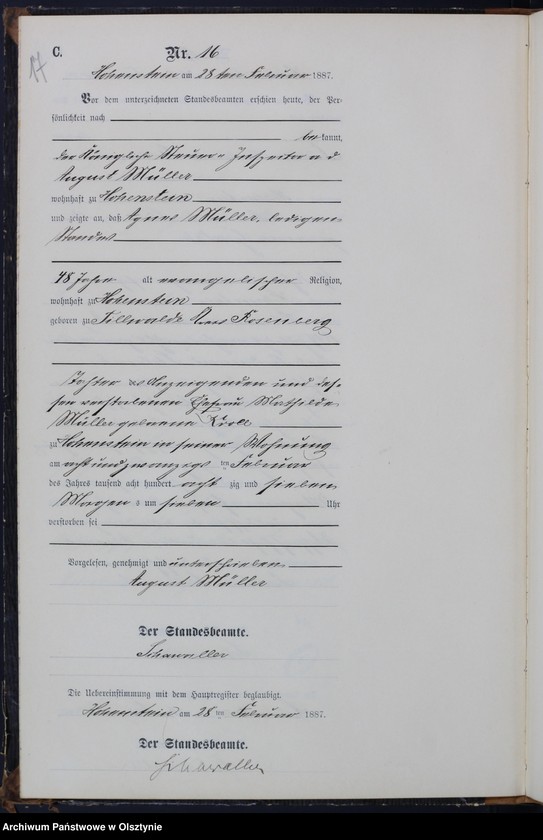 17
C.
Nr. 16
Hohenstein am 28ten Februar 1887.
Vor dem unterzeichneten Standesbeamten erschien heute, der Per-
sönlichkeit nach
bekannt,
der Königliche Steuer-Inspector a. d.
August Müller
wohnhaft zu Hohenstein
und zeigte an, daß Agnes Müller, ledigen
Standes
48 Jahre alt evangelischer Religion,
wohnhaft zu Hohenstein
geboren zu Kreis Rosenberg
Tochter des Anzeigenden und des-
sen verstorbenen Ehefrau Mathilde
Müller geborene Kroll
zu Hohenstein in seiner Wohnung
am acht und zwanzigsten Februar
des Jahres tausend acht hundert achtzig und sieben
Morgens um sieben Uhr
verstorben sei
Vorgelesen, genehmigt und unterschrieben
August Müller
Der Standesbeamte.
Die Uebereinstimmung mit dem Hauptregister beglaubigt.
Hohenstein am 28ten Februar 1887.
Der Standesbeamte.
Archiwum Państwowe w Olsztynie